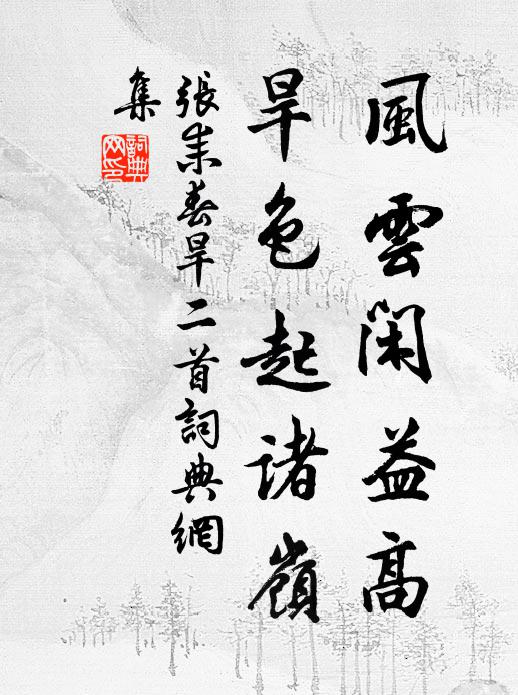 風雲閑益高
旱色起诸嶺
張耒春旱二首詞典網
集
詞典
网印